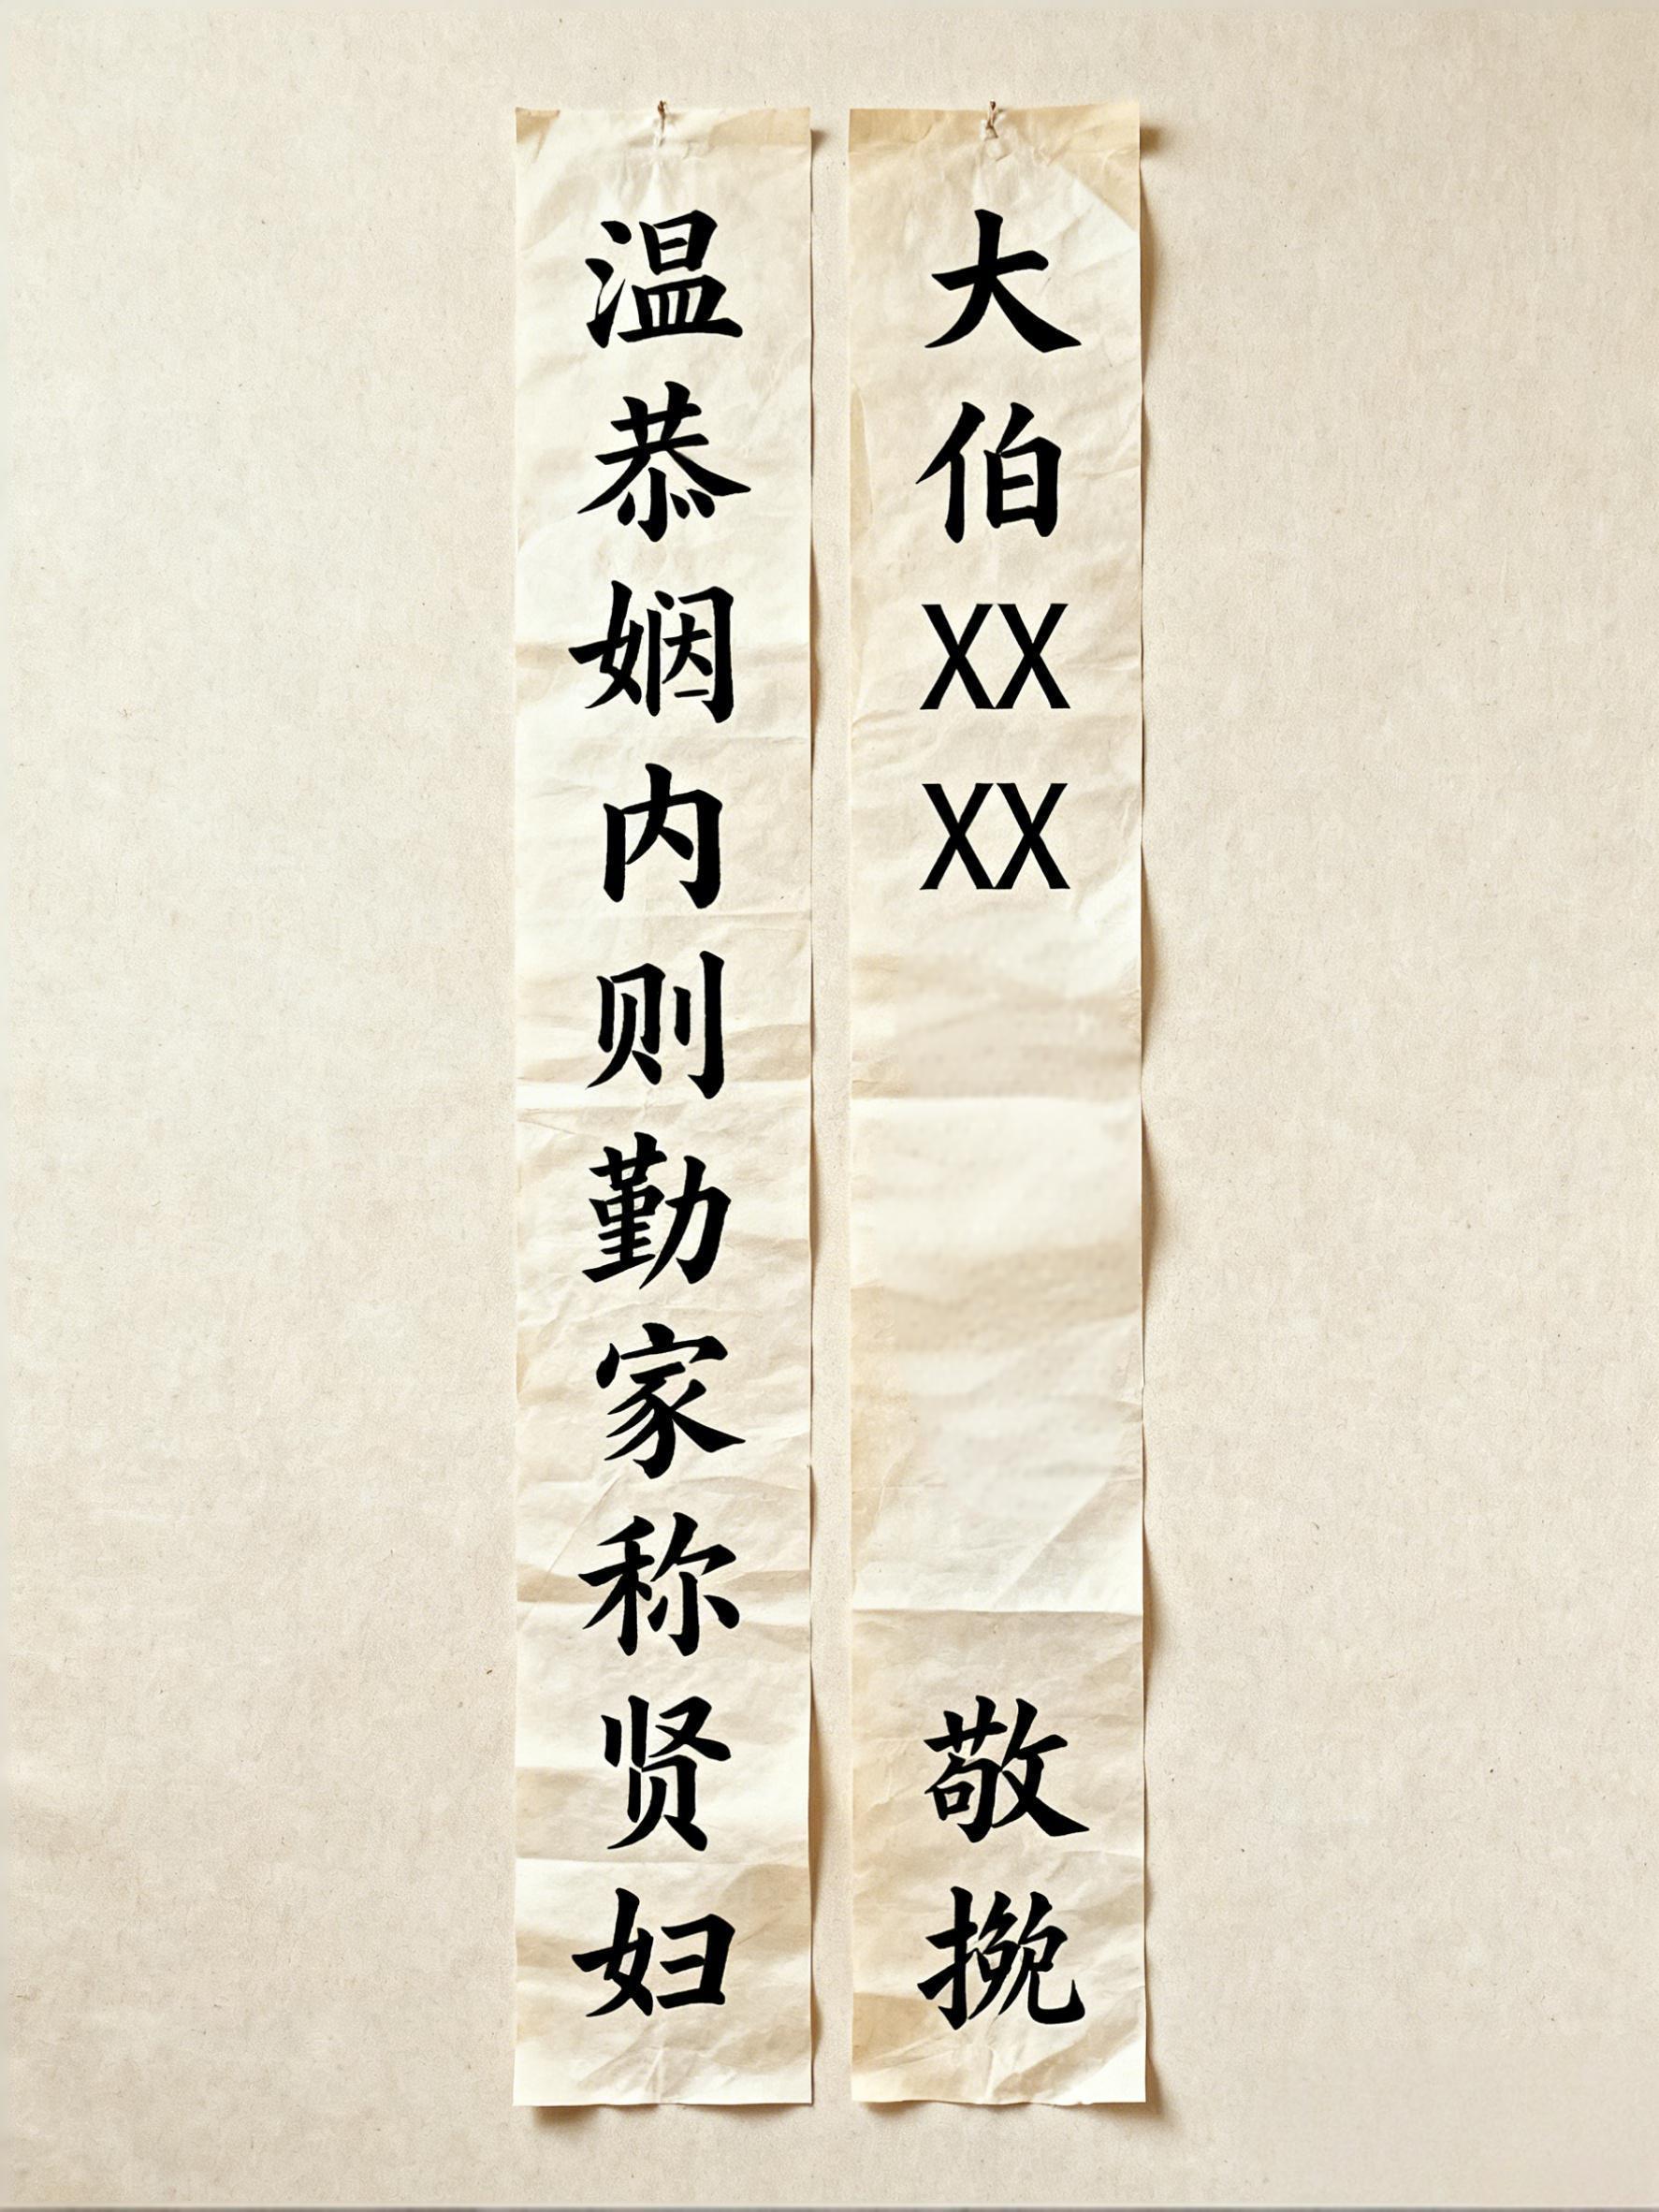 大伯XXXX 敬挽
温恭姻内则勤家称贤妇